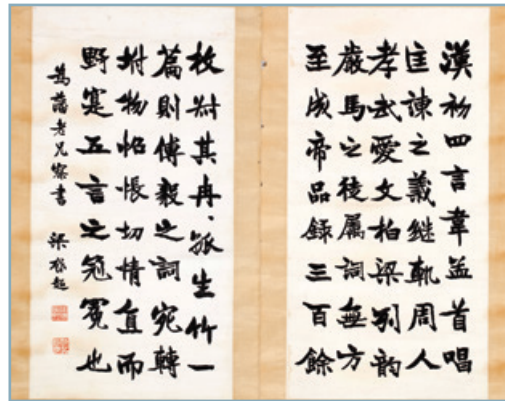 漢初四言韋孟首唱
匡諫之義継軌周人
孝武愛文柏梁別韵
嚴馬之徒屬詞無方
至成帝品錄三百餘
枚叔其冉、孤生竹一
篇則傅毅之詞宛轉
坿物怊悵切情直而
野寔五言之冠冕也
老兄 書 梁啓超